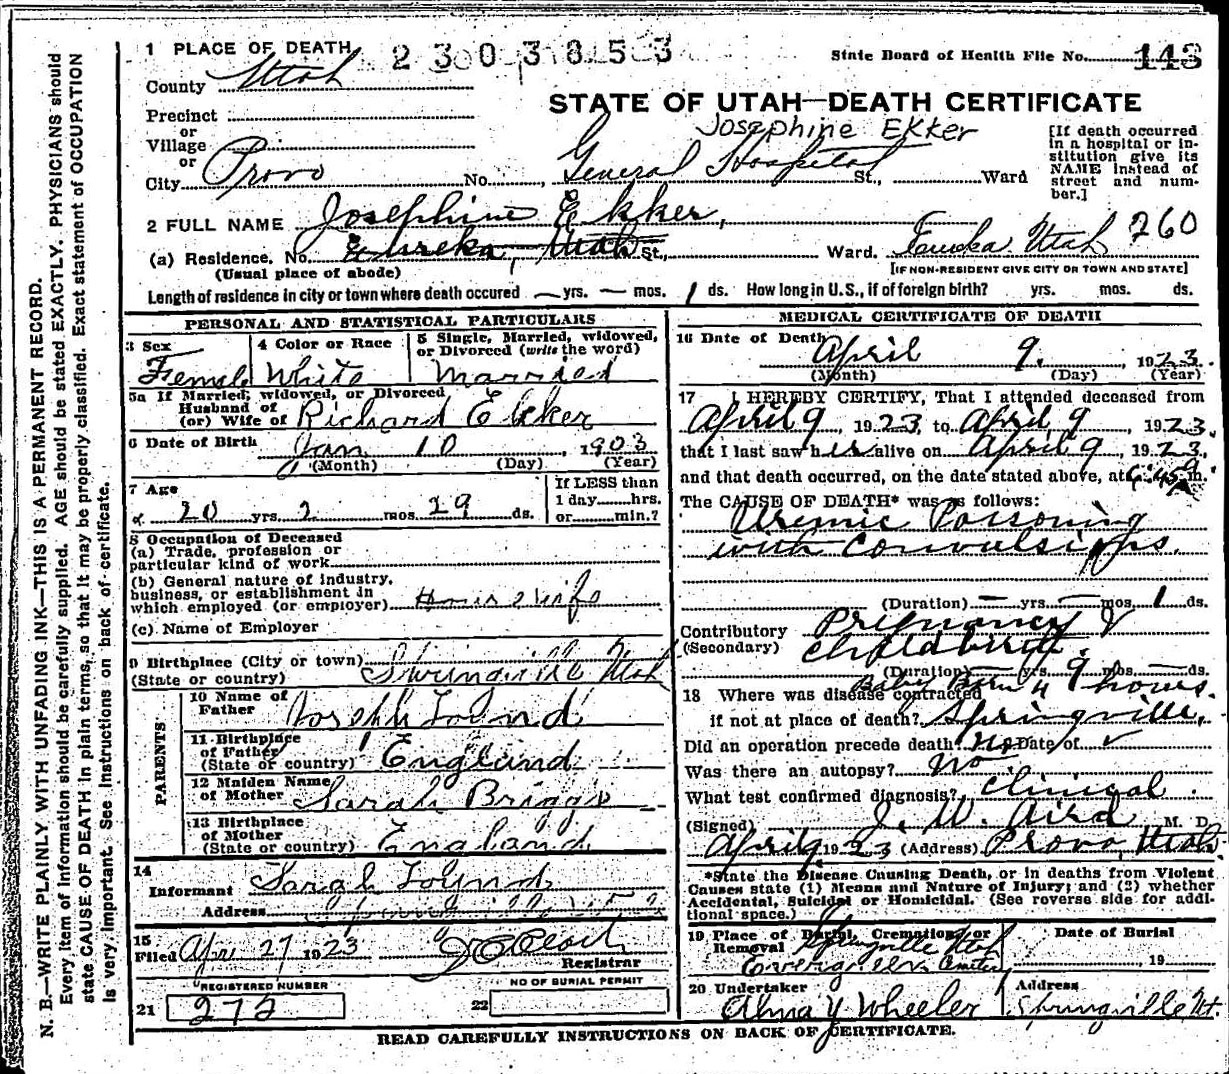 1 PLACE OF DEATH 2303853 State Board of Health File No. 143
County Utah
STATE OF UTAH—DEATH CERTIFICATE
Precinct
Josephine Ekker
or
Village
or
City Provo No. General Hospital St., Ward
[If death occurred
in a hospital or in-
stitution give its
NAME instead of
street and num-
ber.]
2 FULL NAME Josephine Ekker, 260
(a) Residence. No. Eureka, Utah St., Ward. Eureka Utah
(Usual place of abode) [IF NON-RESIDENT GIVE CITY OR TOWN AND STATE]
Length of residence in city or town where death occured — yrs. — mos. 1 ds. How long in U.S., if of foreign birth? yrs. mos. ds.
PERSONAL AND STATISTICAL PARTICULARS
3 Sex 4 Color or Race 5 Single, Married, widowed,
or Divorced (write the word)
Female White Married
5a If Married, widowed, or Divorced
Husband of
(or) Wife of Richard Ekker
6 Date of Birth Jan 10 1903
(Month) (Day) (Year)
7 Age If LESS than
1 day hrs.
20 yrs. 2 mos. 29 ds. or min.?
8 Occupation of Deceased
(a) Trade, profession or
particular kind of work
(b) General nature of industry,
business, or establishment in
which employed (or employer) Housewife
(c) Name of Employer
9 Birthplace (City or town)
(State or country) Springville Utah
PARENTS
10 Name of
Father Joseph
11 Birthplace
of Father
(State or country) England
12 Maiden Name
of Mother Sarah Briggs
13 Birthplace
of Mother
(State or country) England
14
Informant Sarah
Address Springville Utah
15
Filed Apr 27 1923
Registrar
REGISTERED NUMBER NO OF BURIAL PERMIT
21 272 22
MEDICAL CERTIFICATE OF DEATH
16 Date of Death April 9. 1923.
(Month) (Day) (Year)
17 I HEREBY CERTIFY, That I attended deceased from
April 9 1923, to April 9 1923,
that I last saw her alive on April 9 1923,
and that death occurred, on the date stated above, at 6:45 A m.
The CAUSE OF DEATH* was as follows:
Uremic Poisoning
with Convulsions.
(Duration) — yrs. — mos. 1 ds.
Contributory Pregnancy &
(Secondary) Childbirth.
(Duration) — yrs. 9 mos. — ds.
Baby Born 4 hours.
18 Where was disease contracted
if not at place of death? Springville,
Did an operation precede death? No Date of
Was there an autopsy? No
What test confirmed diagnosis? Clinical.
(Signed) J. W. Aird M. D.
April 9 1923 (Address) Provo, Utah.
*State the Disease Causing Death, or in deaths from Violent
Causes state (1) Means and Nature of Injury; and (2) whether
Accidental, Suicidal or Homicidal. (See reverse side for addi-
tional space.)
19 Place of Burial, Cremation, or Date of Burial
Removal Springville Utah
Evergreen Cemetery 19
20 Undertaker Address
Alma Y Wheeler Springville Ut.
READ CAREFULLY INSTRUCTIONS ON BACK OF CERTIFICATE.
N. B.—WRITE PLAINLY WITH UNFADING INK—THIS IS A PERMANENT RECORD.
Every item of information should be carefully supplied. AGE should be stated EXACTLY. PHYSICIANS should
state CAUSE OF DEATH in plain terms, so that it may be properly classified. Exact statement of OCCUPATION
is very important. See instructions on back of certificate.